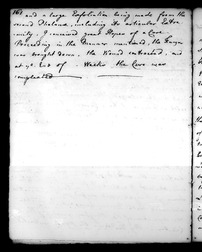 161 and a large Exfoliation being made from the
second Phalanx, including its articular Extre
mity, I conceived great Hopes of a Cure.
Proceeding in the Manner mentioned, the Finger
was brought down, the Wound contracted, and
at ye. End of Weeks the Cure was
compleated